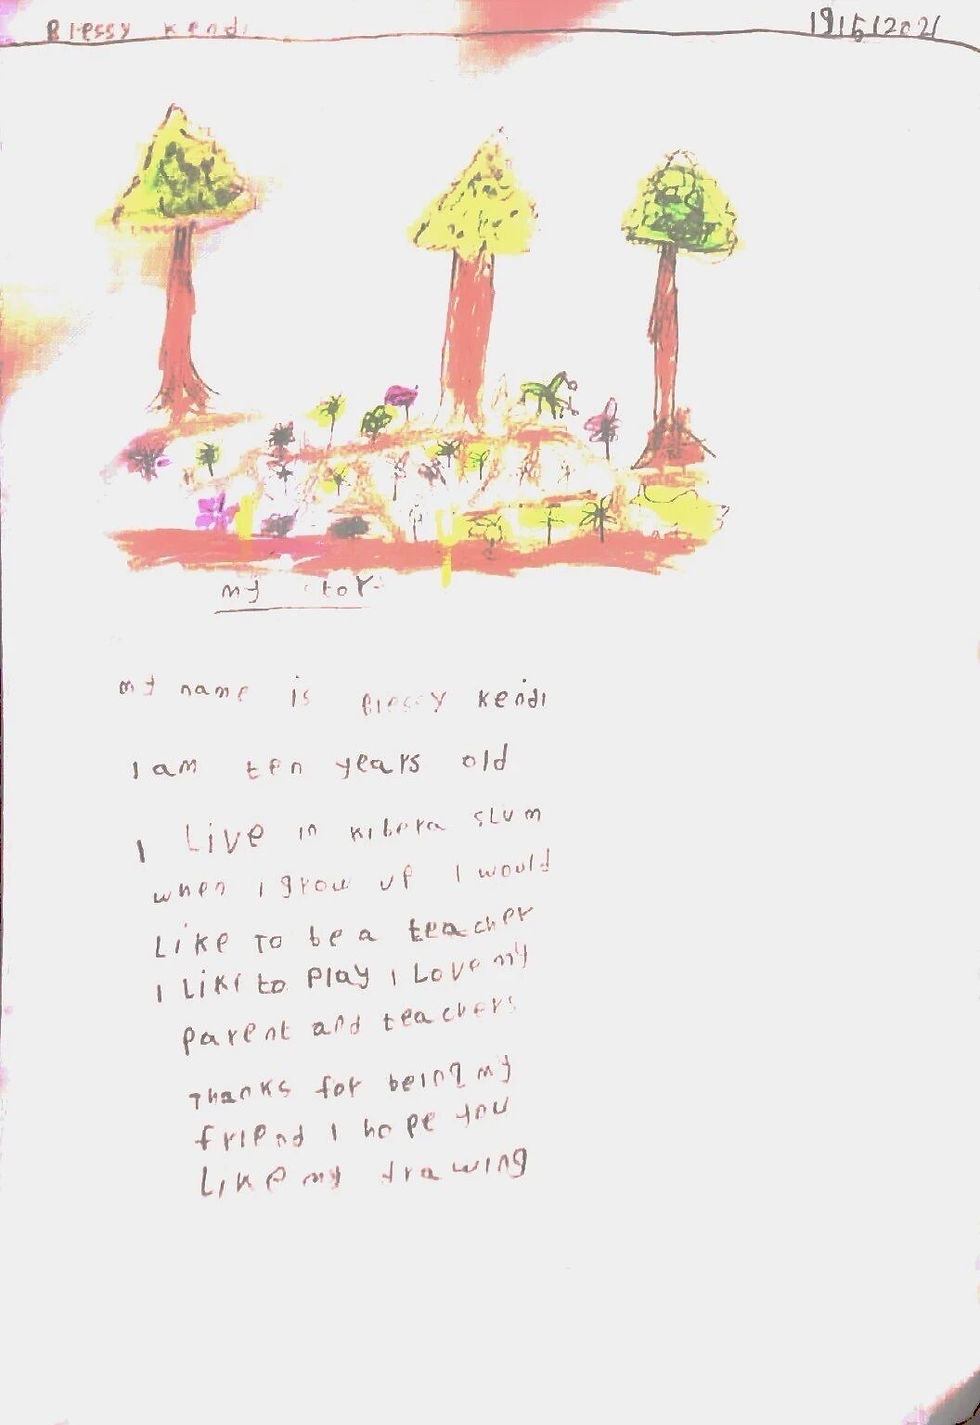 Blessy Kendi
19/5/2021
my stor
my name is Blessy Kendi
I am ten years old
I Live in kibera slum
when I grow up I would
Like To be a teacher
I Like to Play I Love my
parent and teachers
Thanks for being my
friend I hope you
Like my drawing